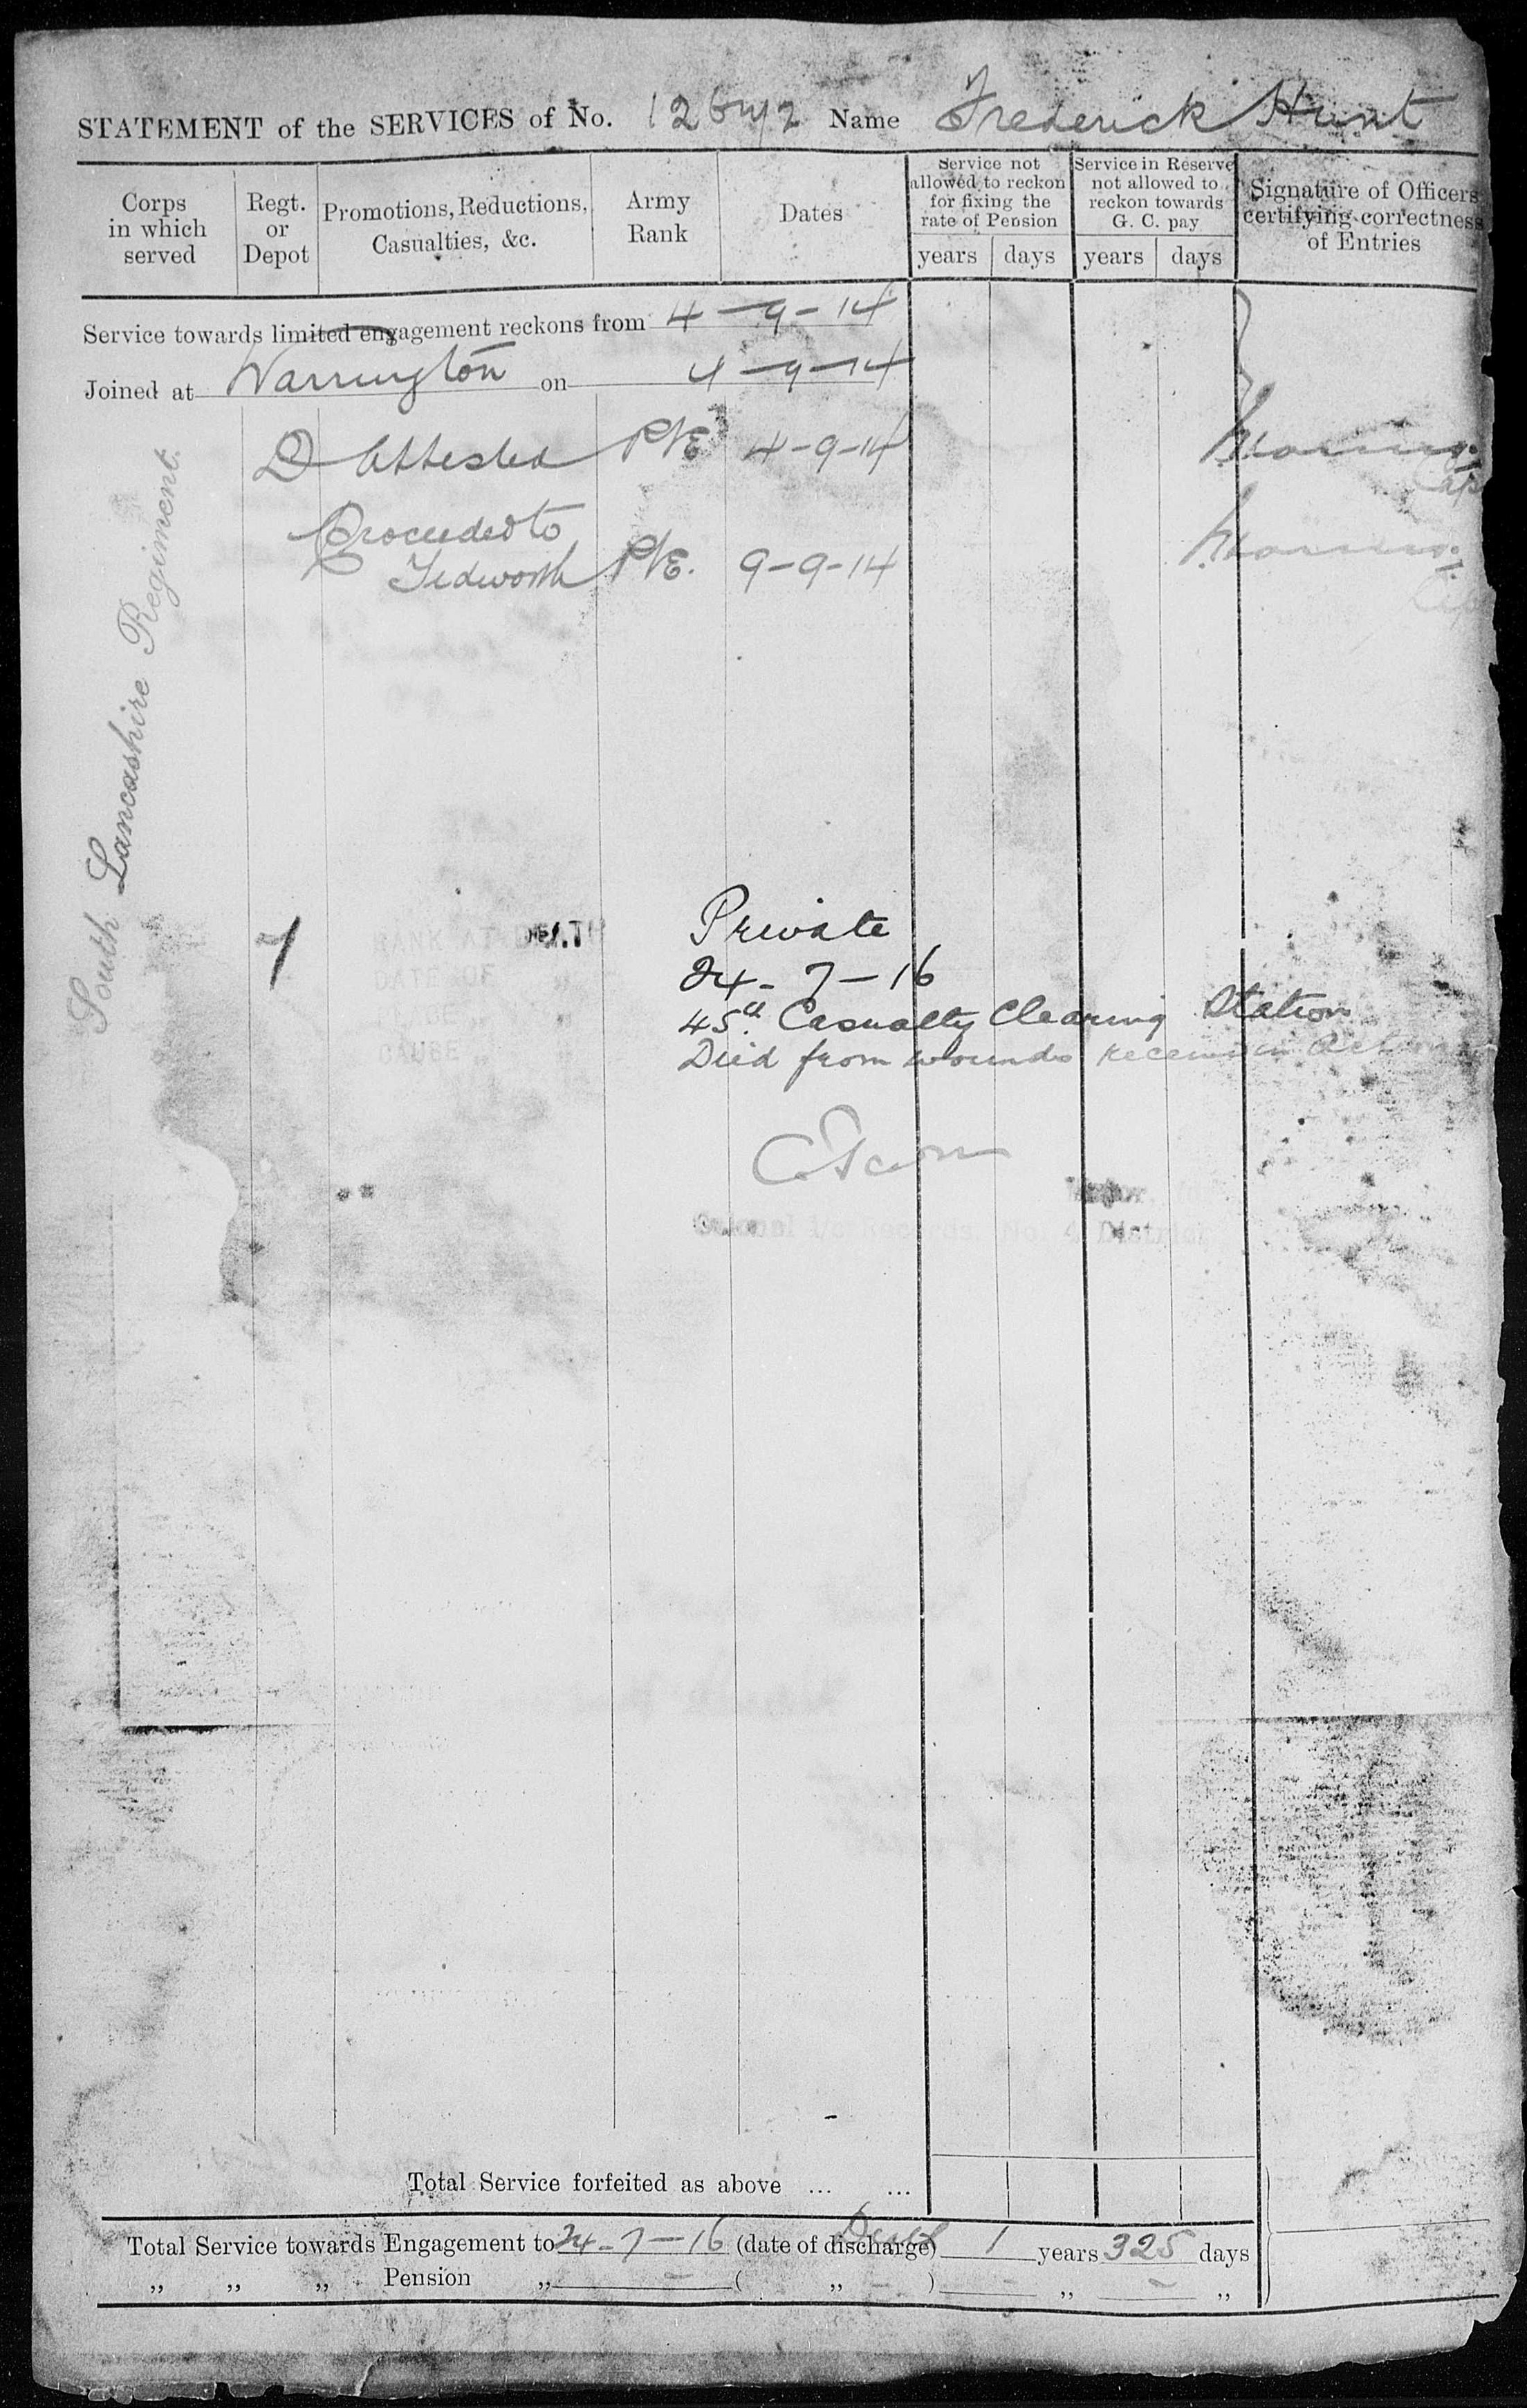 STATEMENT of the SERVICES of No. Name Frederick Hunt
Corps in which served
Regt. or Depot
Promotions, Reductions, Casualties, &c.
Army Rank
Dates
Service not allowed to reckon for fixing the rate of Pension
years days
Service in Reserve not allowed to reckon towards G. C. pay
years days
Signature of Officers certifying correctness of Entries
Service towards limited engagement reckons from 4-9-14
Joined at Warrington on 4-9-14
D Attested PVE 4-9-14
Capt
Proceeded to
Tedworth PVE. 9-9-14
Capt
South Lancashire Regiment.
7 RANK AT DEATH Private
DATE OF " 24-7-16
PLACE " " 45th Casualty Clearing Station
CAUSE " " Died from wounds received in Action
Major, for
Colonel i/c Records, No. 4 District
Total Service forfeited as above ... ...
Death
Total Service towards Engagement to 24-7-16 (date of discharge) 1 years 325 days
" " " Pension " - ( " - ) - " - "